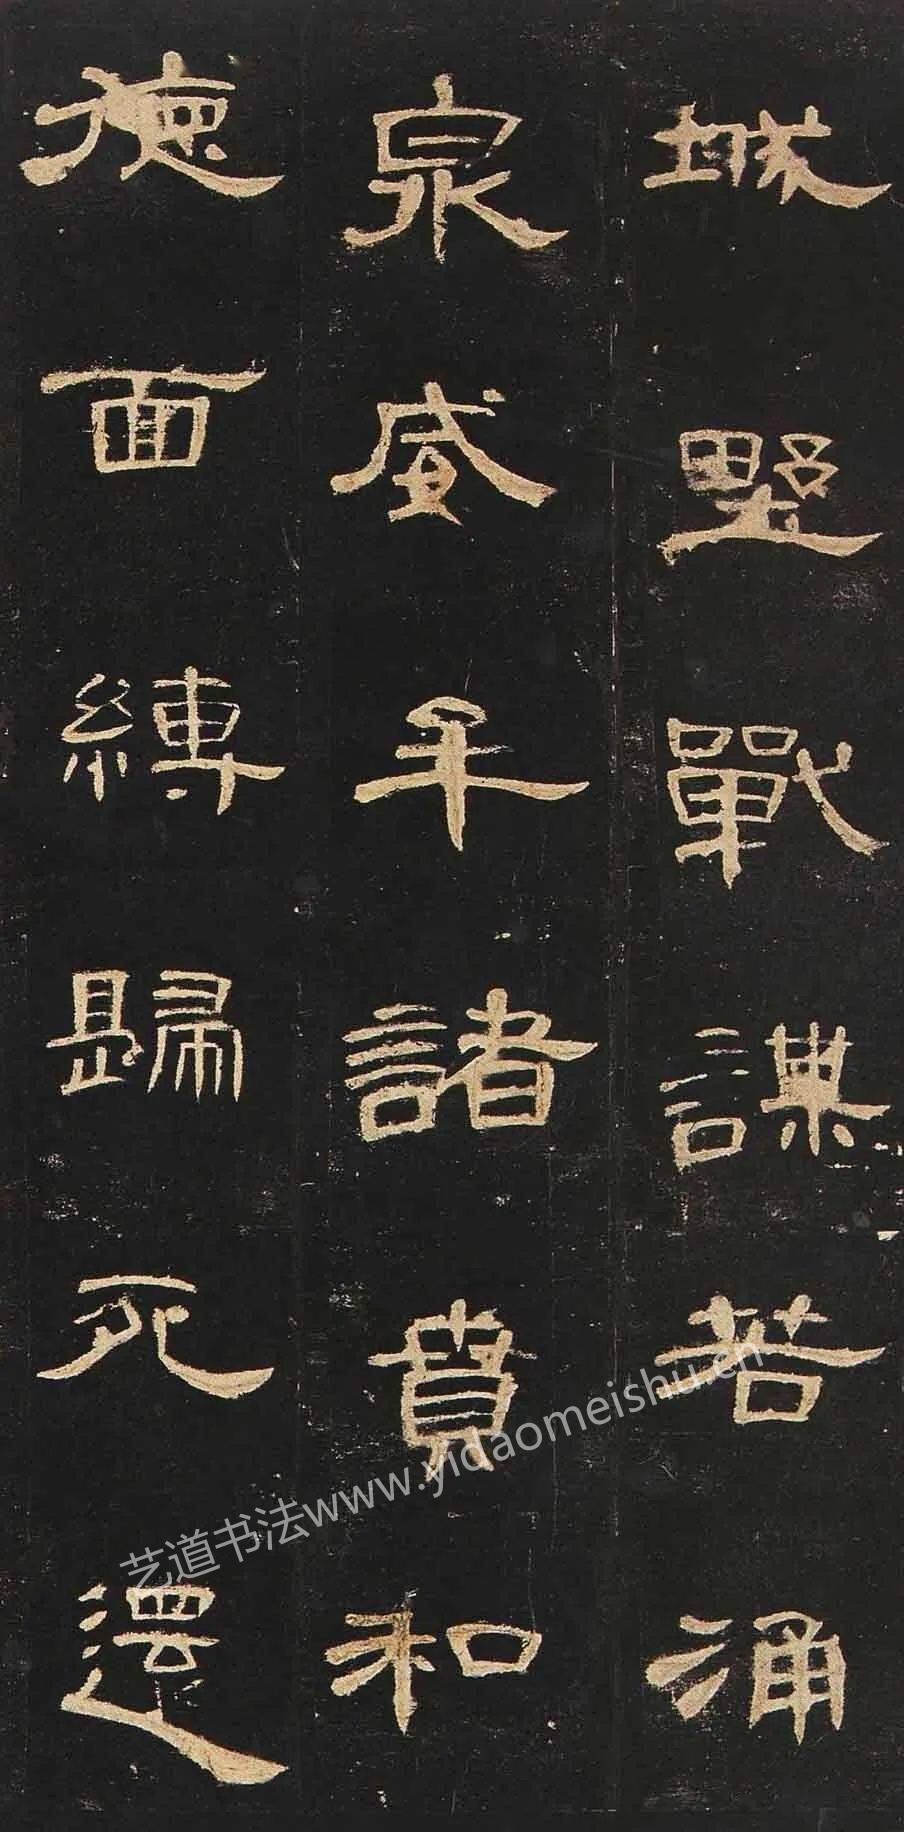 城野戰謀若涌
泉威牟諸賁和
德面縛歸死還
艺道书法www.yidaomeishu.cn